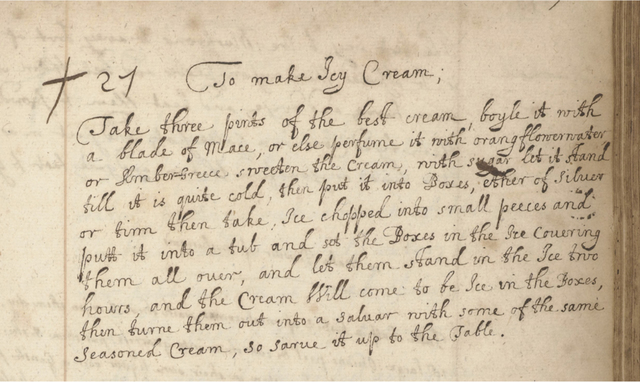 27 To make Icy Cream;
Take three pints of the best cream, boyle it with
a blade of Mace, or else perfume it with orang flower water
or Amber-Greece sweeten the Cream, with sugar let it stand
till it is quite cold, then put it into Boxes, ether of Silver
or tinn then take, Ice chopped into small peeces and
putt it into a tub and set the Boxes in the Ice Covering
them all over, and let them stand in the Ice two
hours, and the Cream Will come to be Ice in the Boxes,
then turne them out into a salvar with some of the same
Seasoned Cream, so sarve it up to the Table.